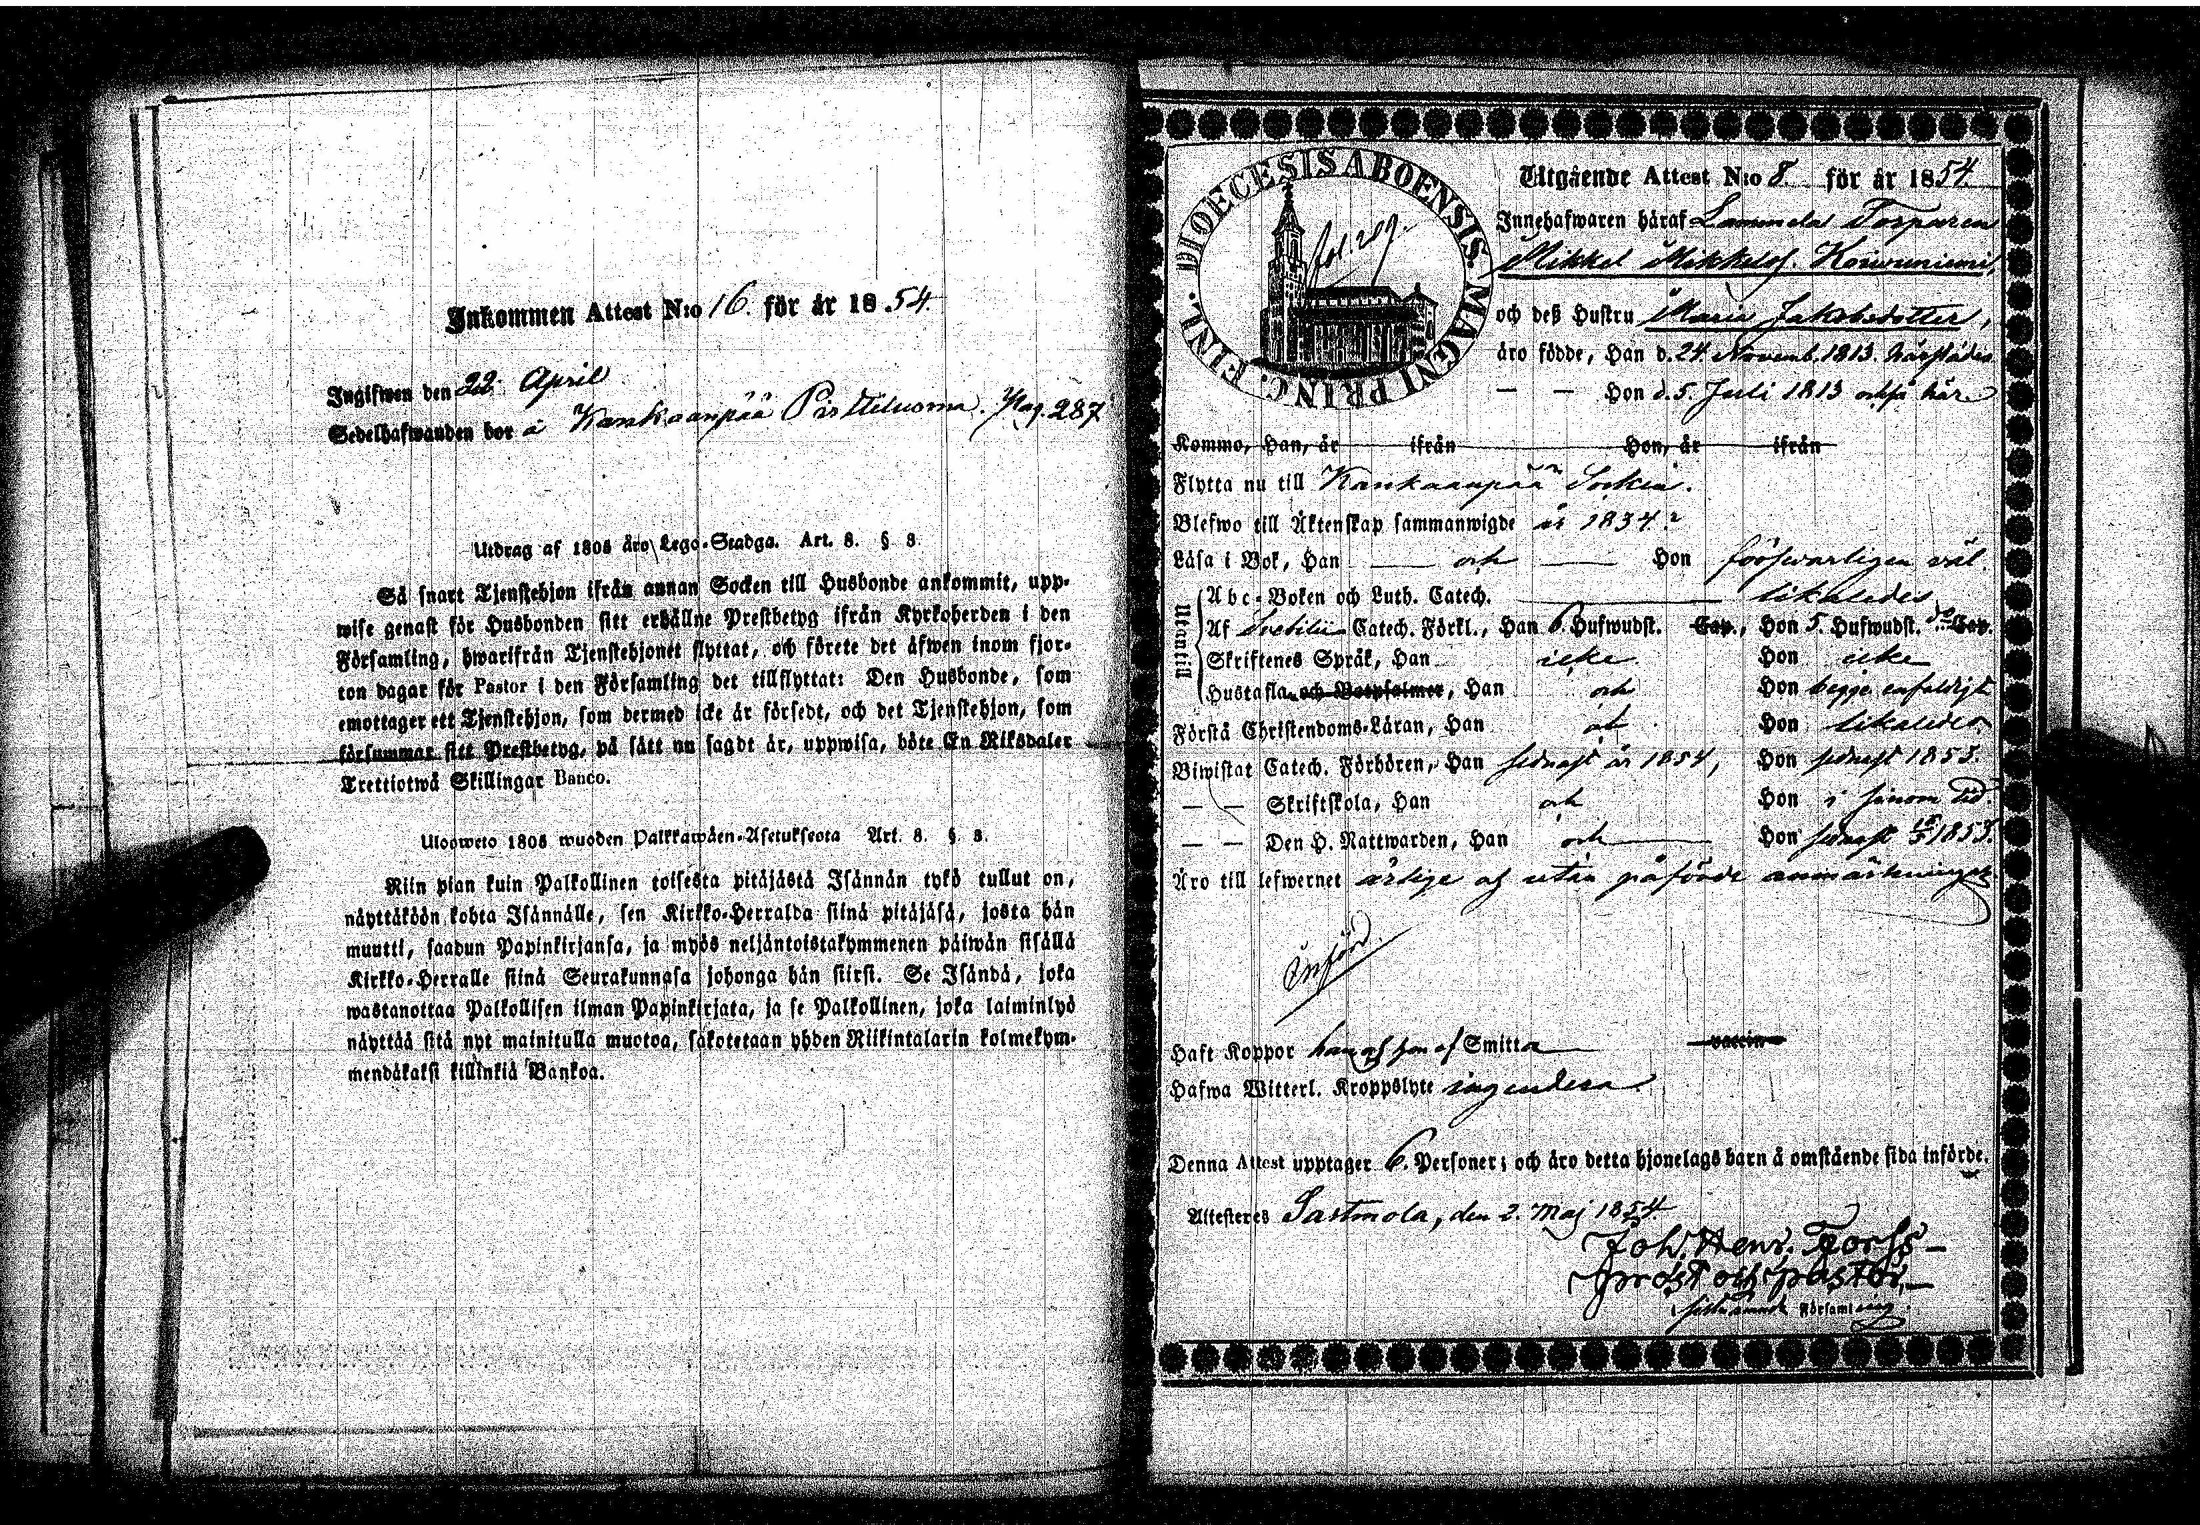 Inkommen Attest N:o 16. för år 18 54.
Ingifwen den 22 April
Sedelhafwanden bor å Kankaanpää Pag. 287
Utdrag af 1805 års Lego-Stadga. Art. 8. § 8.
Så snart Tjenstehjon ifrån annan Socken till Husbonde ankommit, upp-
wise genast för Husbonden sitt erhållne Prestbetyg ifrån Kyrkoherden i den
Församling, hwarifrån Tjenstehjonet flyttat, och förete det äfwen inom fjor-
ton dagar för Pastor i den Församling det tillflyttat: Den Husbonde, som
emottager ett Tjenstehjon, som dermed icke är försedt, och det Tjenstehjon, som
försummar sitt Prestbetyg, på sätt nu sagdt är, uppwisa, böte En Riksdaler
Trettiotwå Skillingar Banco.
Uloosweto 1805 wuoden Palkkawäen-Asetuksesta Art. 8. § 8.
Niin pian kuin Palkollinen toisesta pitäjästä Isännän tykö tullut on,
näyttäköön kohta Isännälle, sen Kirkko-Herralda siinä pitäjäsä, josta hän
muutti, saadun Papinkirjansa, ja myös neljäntoistakymmenen päiwän sisällä
Kirkko-Herralle siinä Seurakunnasa johonga hän siirsi. Se Isändä, joka
wastanottaa Palkollisen ilman Papinkirjata, ja se Palkollinen, joka laiminlyö
näyttää sitä nyt mainitulla muotoa, sakotetaan yhden Riikintalarin kolmekym-
mendäkaksi killinkiä Bankoa.
DIOECESIS ABOENSIS. MAGNI PRINC. FINL.
fol. 289.
Utgående Attest N:o 8. för år 1854.
Innehafwaren häraf Lammela Torparen
Mikkel Mikkelsf. Korwuniemi,
och deß Hustru Maria Jakobsdotter,
äro födde, Han d. 24 Novemb. 1813. härstädes
— — Hon d. 5. Juli 1813 också här
Kommo, Han, år ifrån Hon, år ifrån
Flytta nu till Kankaanpää Sockn.
Blefwo till Äktenskap sammanwigde år 1834.
Läsa i Bok, Han och Hon försvarligen väl.
Utantill
Abc-Boken och Luth. Catech. likaledes
Af Svebilii Catech. Förkl., Han 6. Hufwudst. Cap., Hon 5. Hufwudst. Cap.
Skriftenes Språk, Han icke Hon icke
Hustafla och Botpsalmer, Han och Hon begge enfaldigt
Förstå Christendoms-Läran, Han och Hon likaledes
Biwistat Catech. Förhören, Han sednast år 1854, Hon sednast 1853.
— — Skriftskola, Han och Hon i sinom tid.
— — Den H. Nattwarden, Han och Hon sednast 1853.
Äro till lefwernet ärlige och utan påförde anmärkningar
Införd.
Haft Koppor han och hon af Smitta vaccin
Hafwa Witterl. Kroppslyte ingendera
Denna Attest upptager 6. Personer; och äro detta hjonelags barn å omstående sida införde.
Attesteres Sastmola, den 2. Maj 1854.
Joh. Henr. Forss
prost och pastor
Församling.